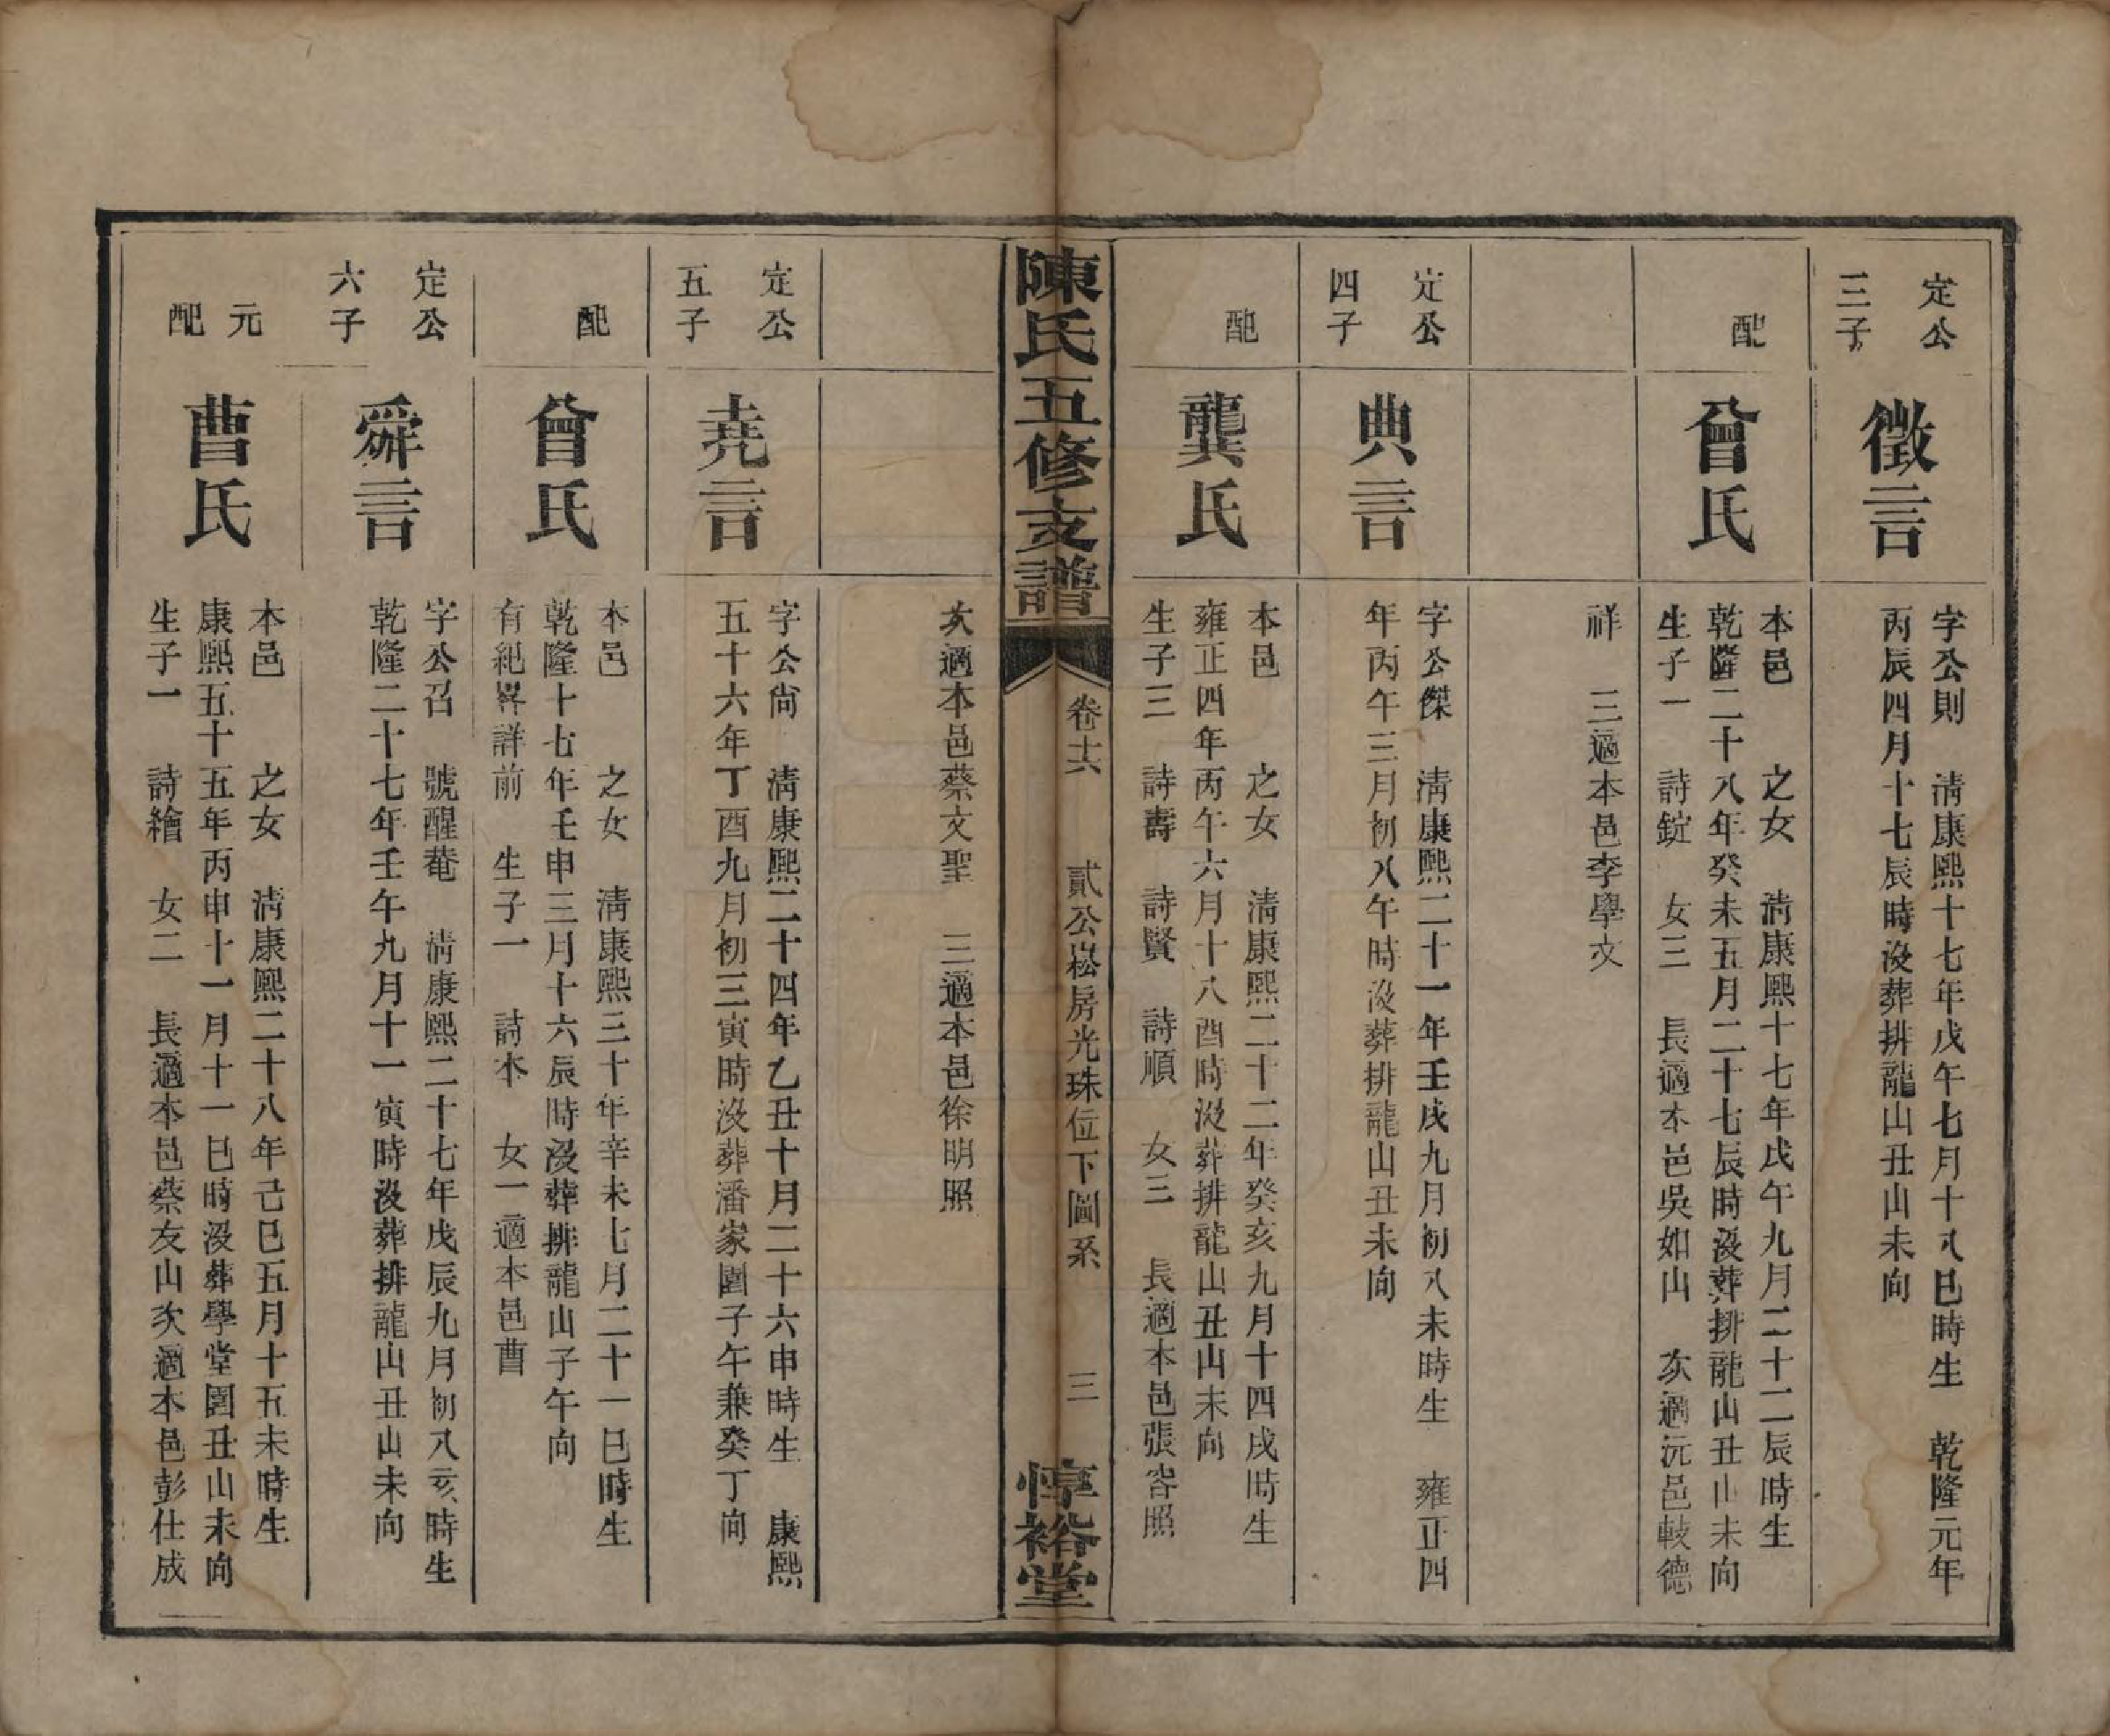 定公
三子
徵言
字公則　清康熙十七年戊午七月十八巳時生　乾隆元年
丙辰四月十七辰時沒葬排龍山丑山未向
配
曾氏
本邑　　之女　清康熙十七年戊午九月二十二辰時生
乾隆二十八年癸未五月二十七辰時沒葬排龍山丑山未向
生子一　詩錠　女三　長適本邑吳如山　次適沅邑較德
祥　三適本邑李學文
定公
四子
典言
字公傑　清康熙二十一年壬戌九月初八未時生　雍正四
年丙午三月初八午時沒葬排龍山丑未向
配
龔氏
本邑　　之女　清康熙二十二年癸亥九月十四戌時生
雍正四年丙午六月十八酉時沒葬排龍山丑山未向
生子三　詩壽　詩賢　詩順　女三　長適本邑張容照
陳氏五修支譜
卷十六　貳公崧房光珠位下圖系　三
惇裕堂
次適本邑蔡文聖　三適本邑徐明照
定公
五子
堯言
字公尙　清康熙二十四年乙丑十月二十六申時生　康熙
五十六年丁酉九月初三寅時沒葬潘家園子午兼癸丁向
配
曾氏
本邑　　之女　清康熙三十年辛未七月二十一巳時生
乾隆十七年壬申三月十六辰時沒葬排龍山子午向
有紀畧詳前　生子一　詩本　女一適本邑曹
定公
六子
舜言
字公召　號醒菴　清康熙二十七年戊辰九月初八亥時生
乾隆二十七年壬午九月十一寅時沒葬排龍山丑山未向
元
配
曹氏
本邑　　之女　清康熙二十八年己巳五月十五未時生
康熙五十五年丙申十一月十一巳時沒葬學堂園丑山未向
生子一　詩繪　女二　長適本邑蔡友山次適本邑彭仕成